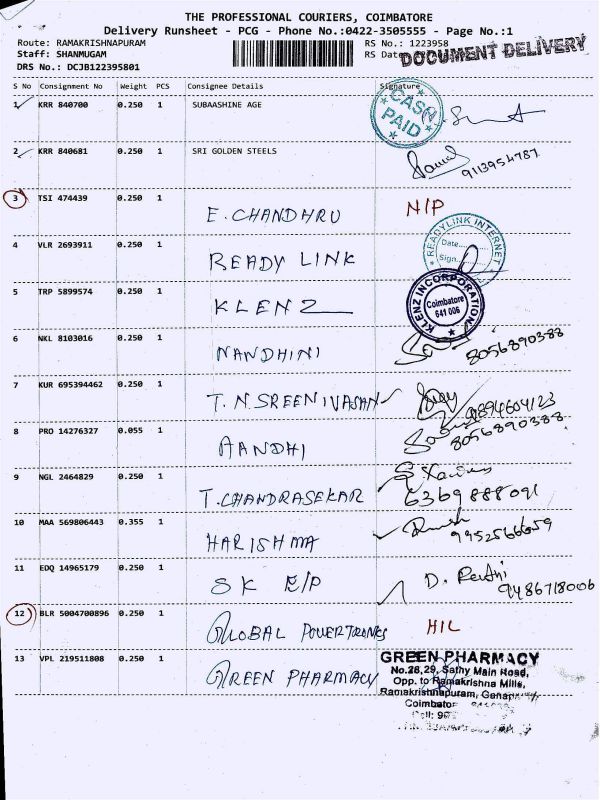 THE PROFESSIONAL COURIERS, COIMBATORE
Delivery Runsheet - PCG - Phone No.:0422-3505555 - Page No.:1
Route: RAMAKRISHNAPURAM RS No.: 1223958
Staff: SHANMUGAM RS Date DOCUMENT DELIVERY
DRS No.: DCJB122395801
S No Consignment No Weight PCS Consignee Details Signature
1 KRR 840700 0.250 1 SUBAASHINE AGE CASH PAID
2 KRR 840681 0.250 1 SRI GOLDEN STEELS 9113954787
3 TSI 474439 0.250 1 E. CHANDHRU N/P
4 VLR 2693911 0.250 1 READY LINK READYLINK INTERNET Date Sign
5 TRP 5899574 0.250 1 KLENZ KLENZ INCORPORATION Coimbatore 641 006
6 NKL 8103016 0.250 1 NANDHINI 8056890388
7 KUR 695394462 0.250 1 T. N. SREENIVASAN 9894604123
8 PRO 14276327 0.055 1 AANDHI 8056890388
9 NGL 2464829 0.250 1 T. CHANDRASEKAR 6369888091
10 MAA 569806443 0.355 1 HARISHMA 9952566659
11 EDQ 14965179 0.250 1 SK E/P D. 9486718006
12 BLR 5004700896 0.250 1 GLOBAL POWERTRONICS H/L
13 VPL 219511808 0.250 1 GREEN PHARMACY GREEN PHARMACY
No.28,29, Sathy Main Road,
Opp. to Ramakrishna Mills,
Ramakrishnapuram,
Coimbator